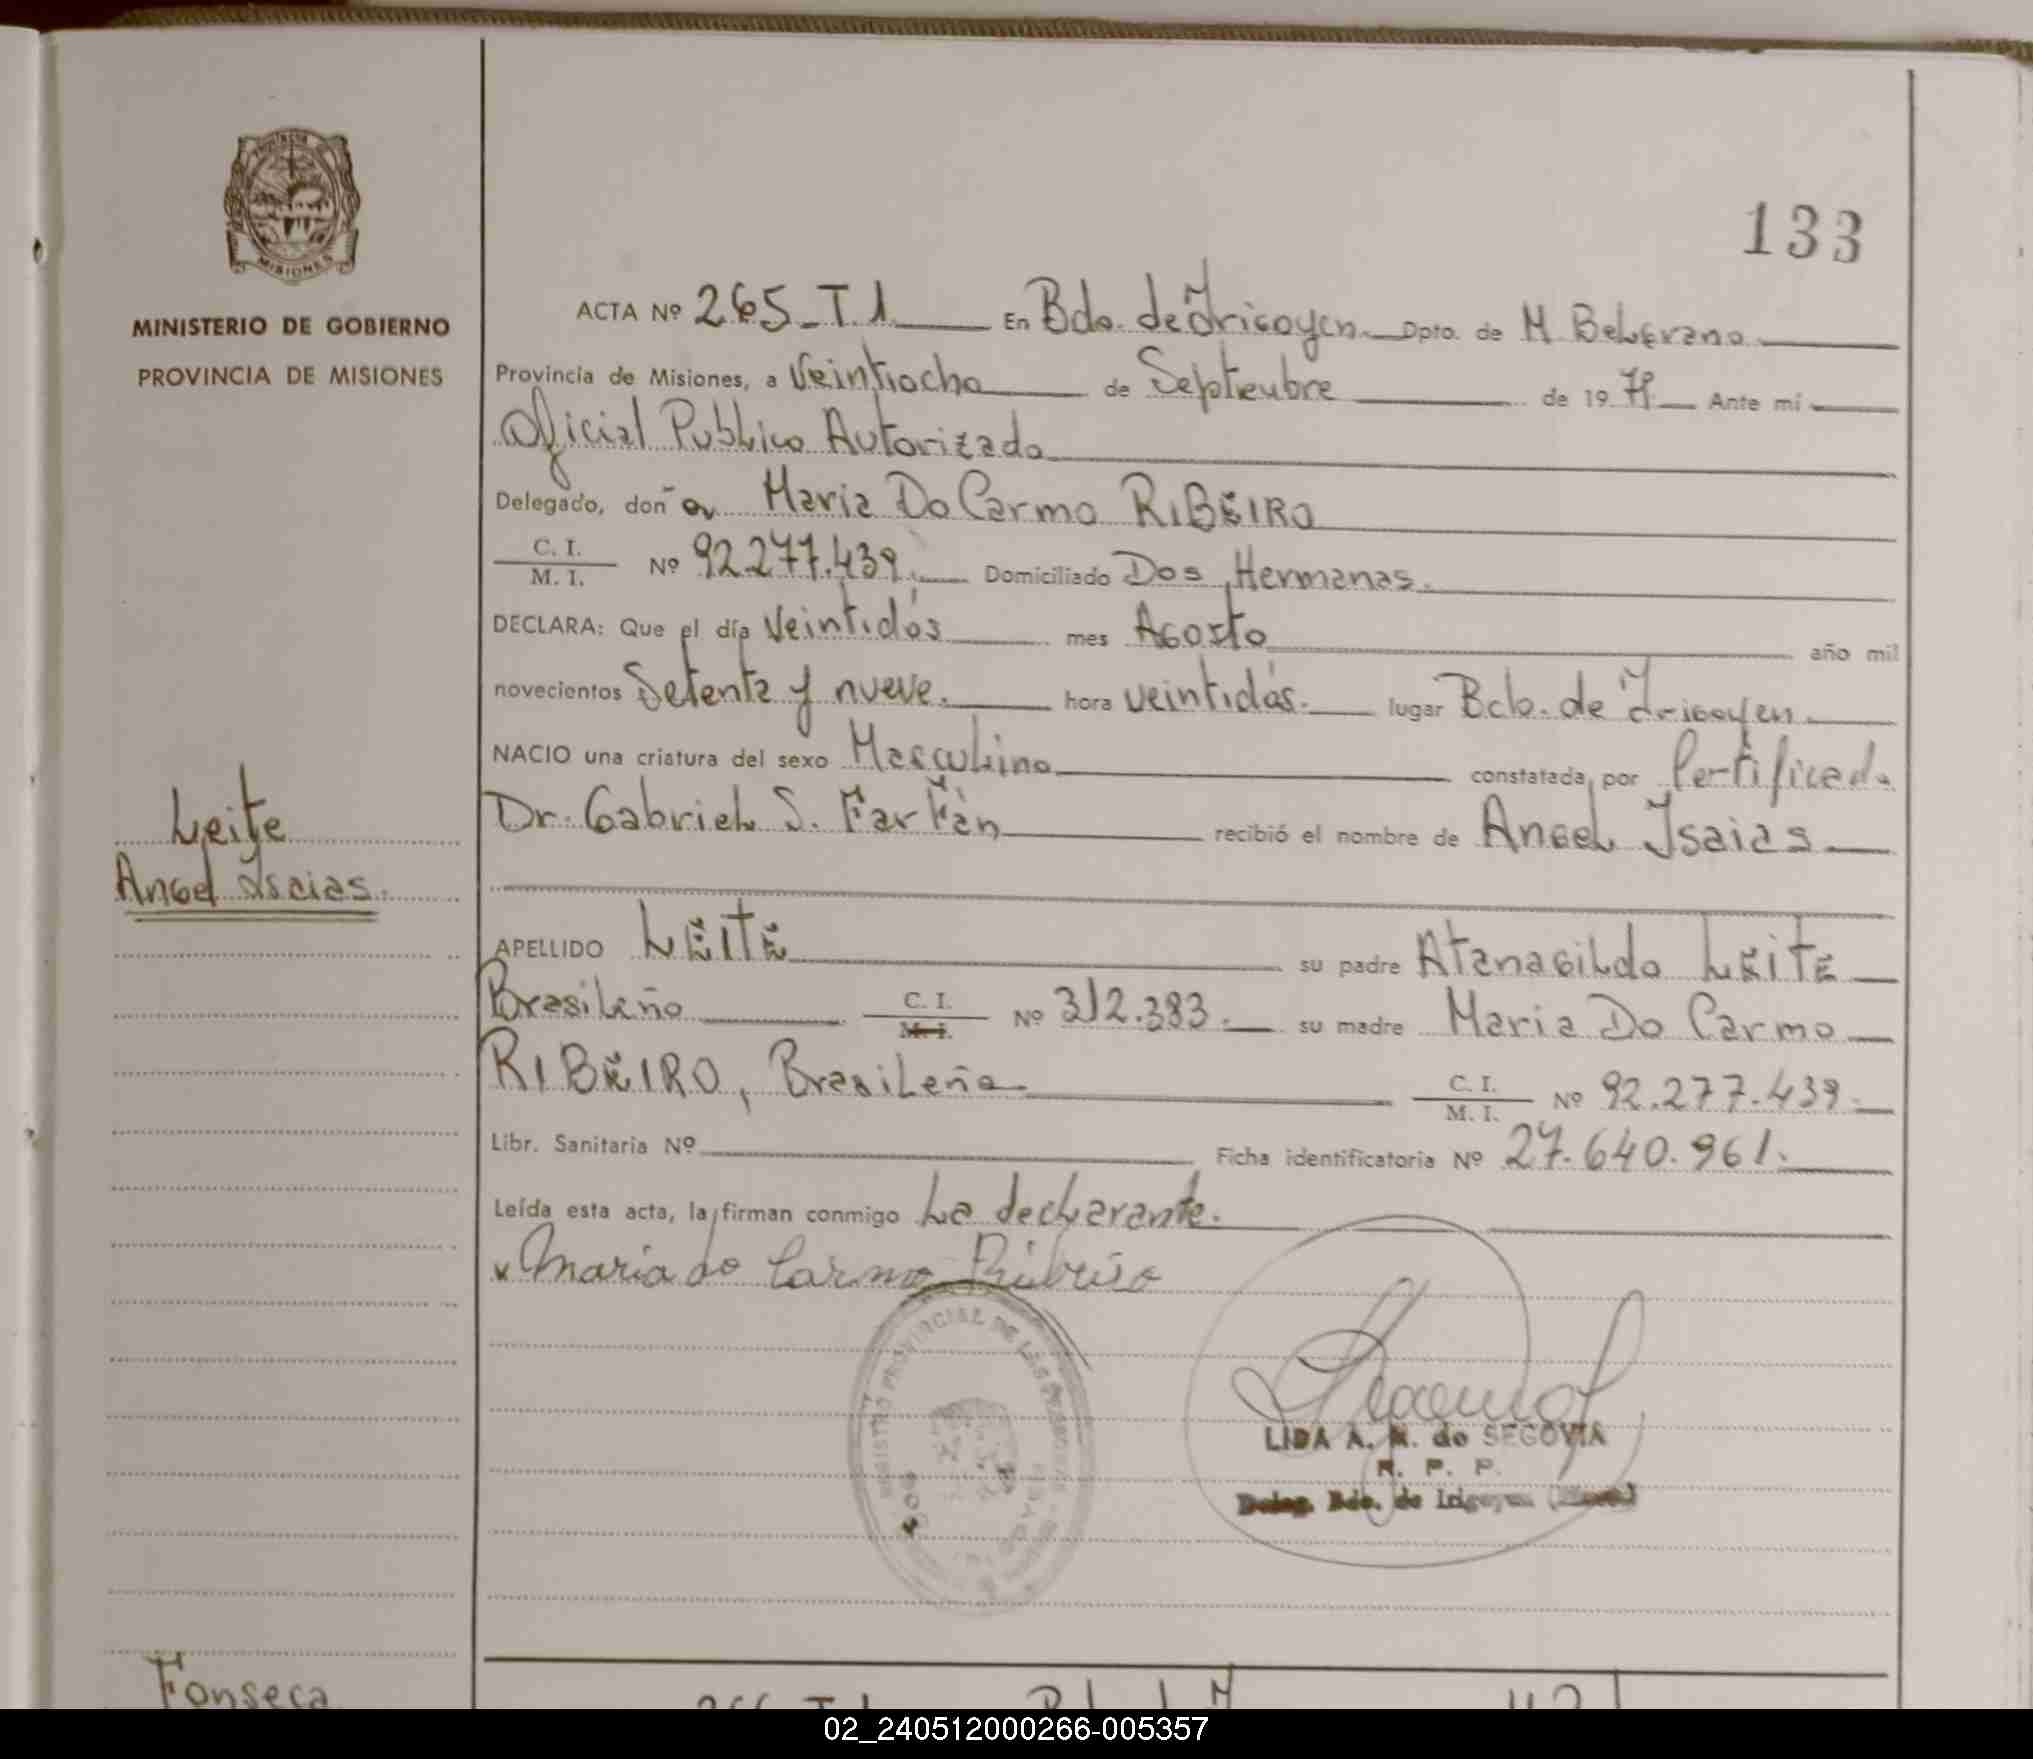 133
PROVINCIA
MISIONES
MINISTERIO DE GOBIERNO
PROVINCIA DE MISIONES
ACTA Nº 265_T.1. En Bdo. de Irigoyen. Dpto. de M. Belgrano
Provincia de Misiones, a Veintiocho de Septiembre de 19 79 Ante mí
Oficial Publico Autorizado
Delegado, don~a Maria Do Carmo RIBEIRO
C. I.
M. I. Nº 92.277.439. Domiciliado Dos Hermanas.
DECLARA: Que el día Veintidós mes Agosto año mil
novecientos Setenta y nueve. hora veintidós. lugar Bdo. de Irigoyen
NACIO una criatura del sexo Masculino constatada por Certificado
Dr. Gabriel S. recibió el nombre de Angel Isaias
Leite
Angel Isaias.
APELLIDO LEITE su padre Atanagildo LEITE
Brasileño C. I.
M. I. Nº 312.383. su madre Maria Do Carmo
RIBEIRO, Brasileña. C. I.
M. I. Nº 92.277.439.
Libr. Sanitaria Nº Ficha identificatoria Nº 27.640.961.
Leída esta acta, la firman conmigo La declarante.
x Maria do Carmo Ribeiro
REGISTRO PROVINCIAL DE LAS PERSONAS
LIDA A. M. de SEGOVIA
R. P. P.
Deleg. Bdo. de Irigoyen
Fonseca
02_240512000266-005357